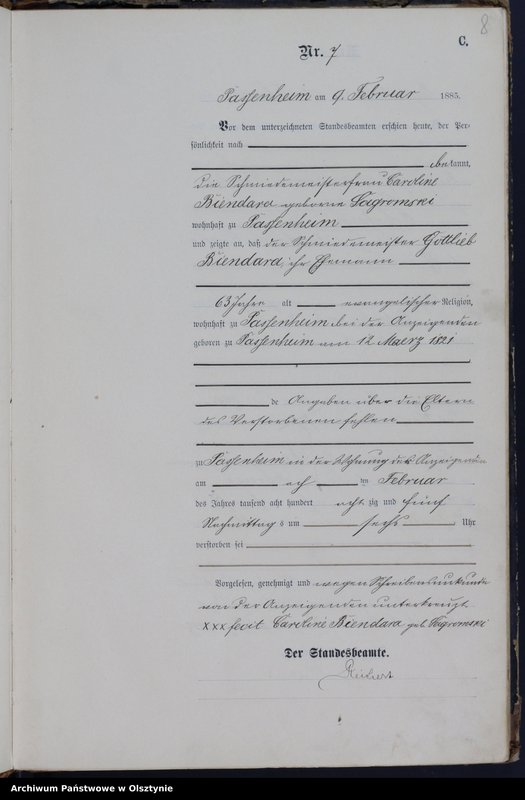 8
C.
Nr. 7
Passenheim am 9. Februar 1885.
Vor dem unterzeichneten Standesbeamten erschien heute, der Per-
sönlichkeit nach
bekannt,
die Schmiedemeisterfrau Caroline
Biendara geborne Sagromski
wohnhaft zu Passenheim
und zeigte an, daß der Schmiedemeister Gottlieb
Biendara, ihr Ehemann
63 Jahre alt evangelischer Religion,
wohnhaft zu Passenheim bei der Anzeigenden
geboren zu Passenheim am 12 Maerz 1821
de Angaben über die Eltern
des Verstorbenen fehlen
zu Passenheim in der Wohnung der Anzeigenden
am ach ten Februar
des Jahres tausend acht hundert acht zig und fünf
Nachmittag s um sechs Uhr
verstorben sei
Vorgelesen, genehmigt und wegen Schreibensunkunde
von der Anzeigenden unterkreuzt
xxx fecit Caroline Biendara geb. Sagromski
Der Standesbeamte.
Archiwum Państwowe w Olsztynie